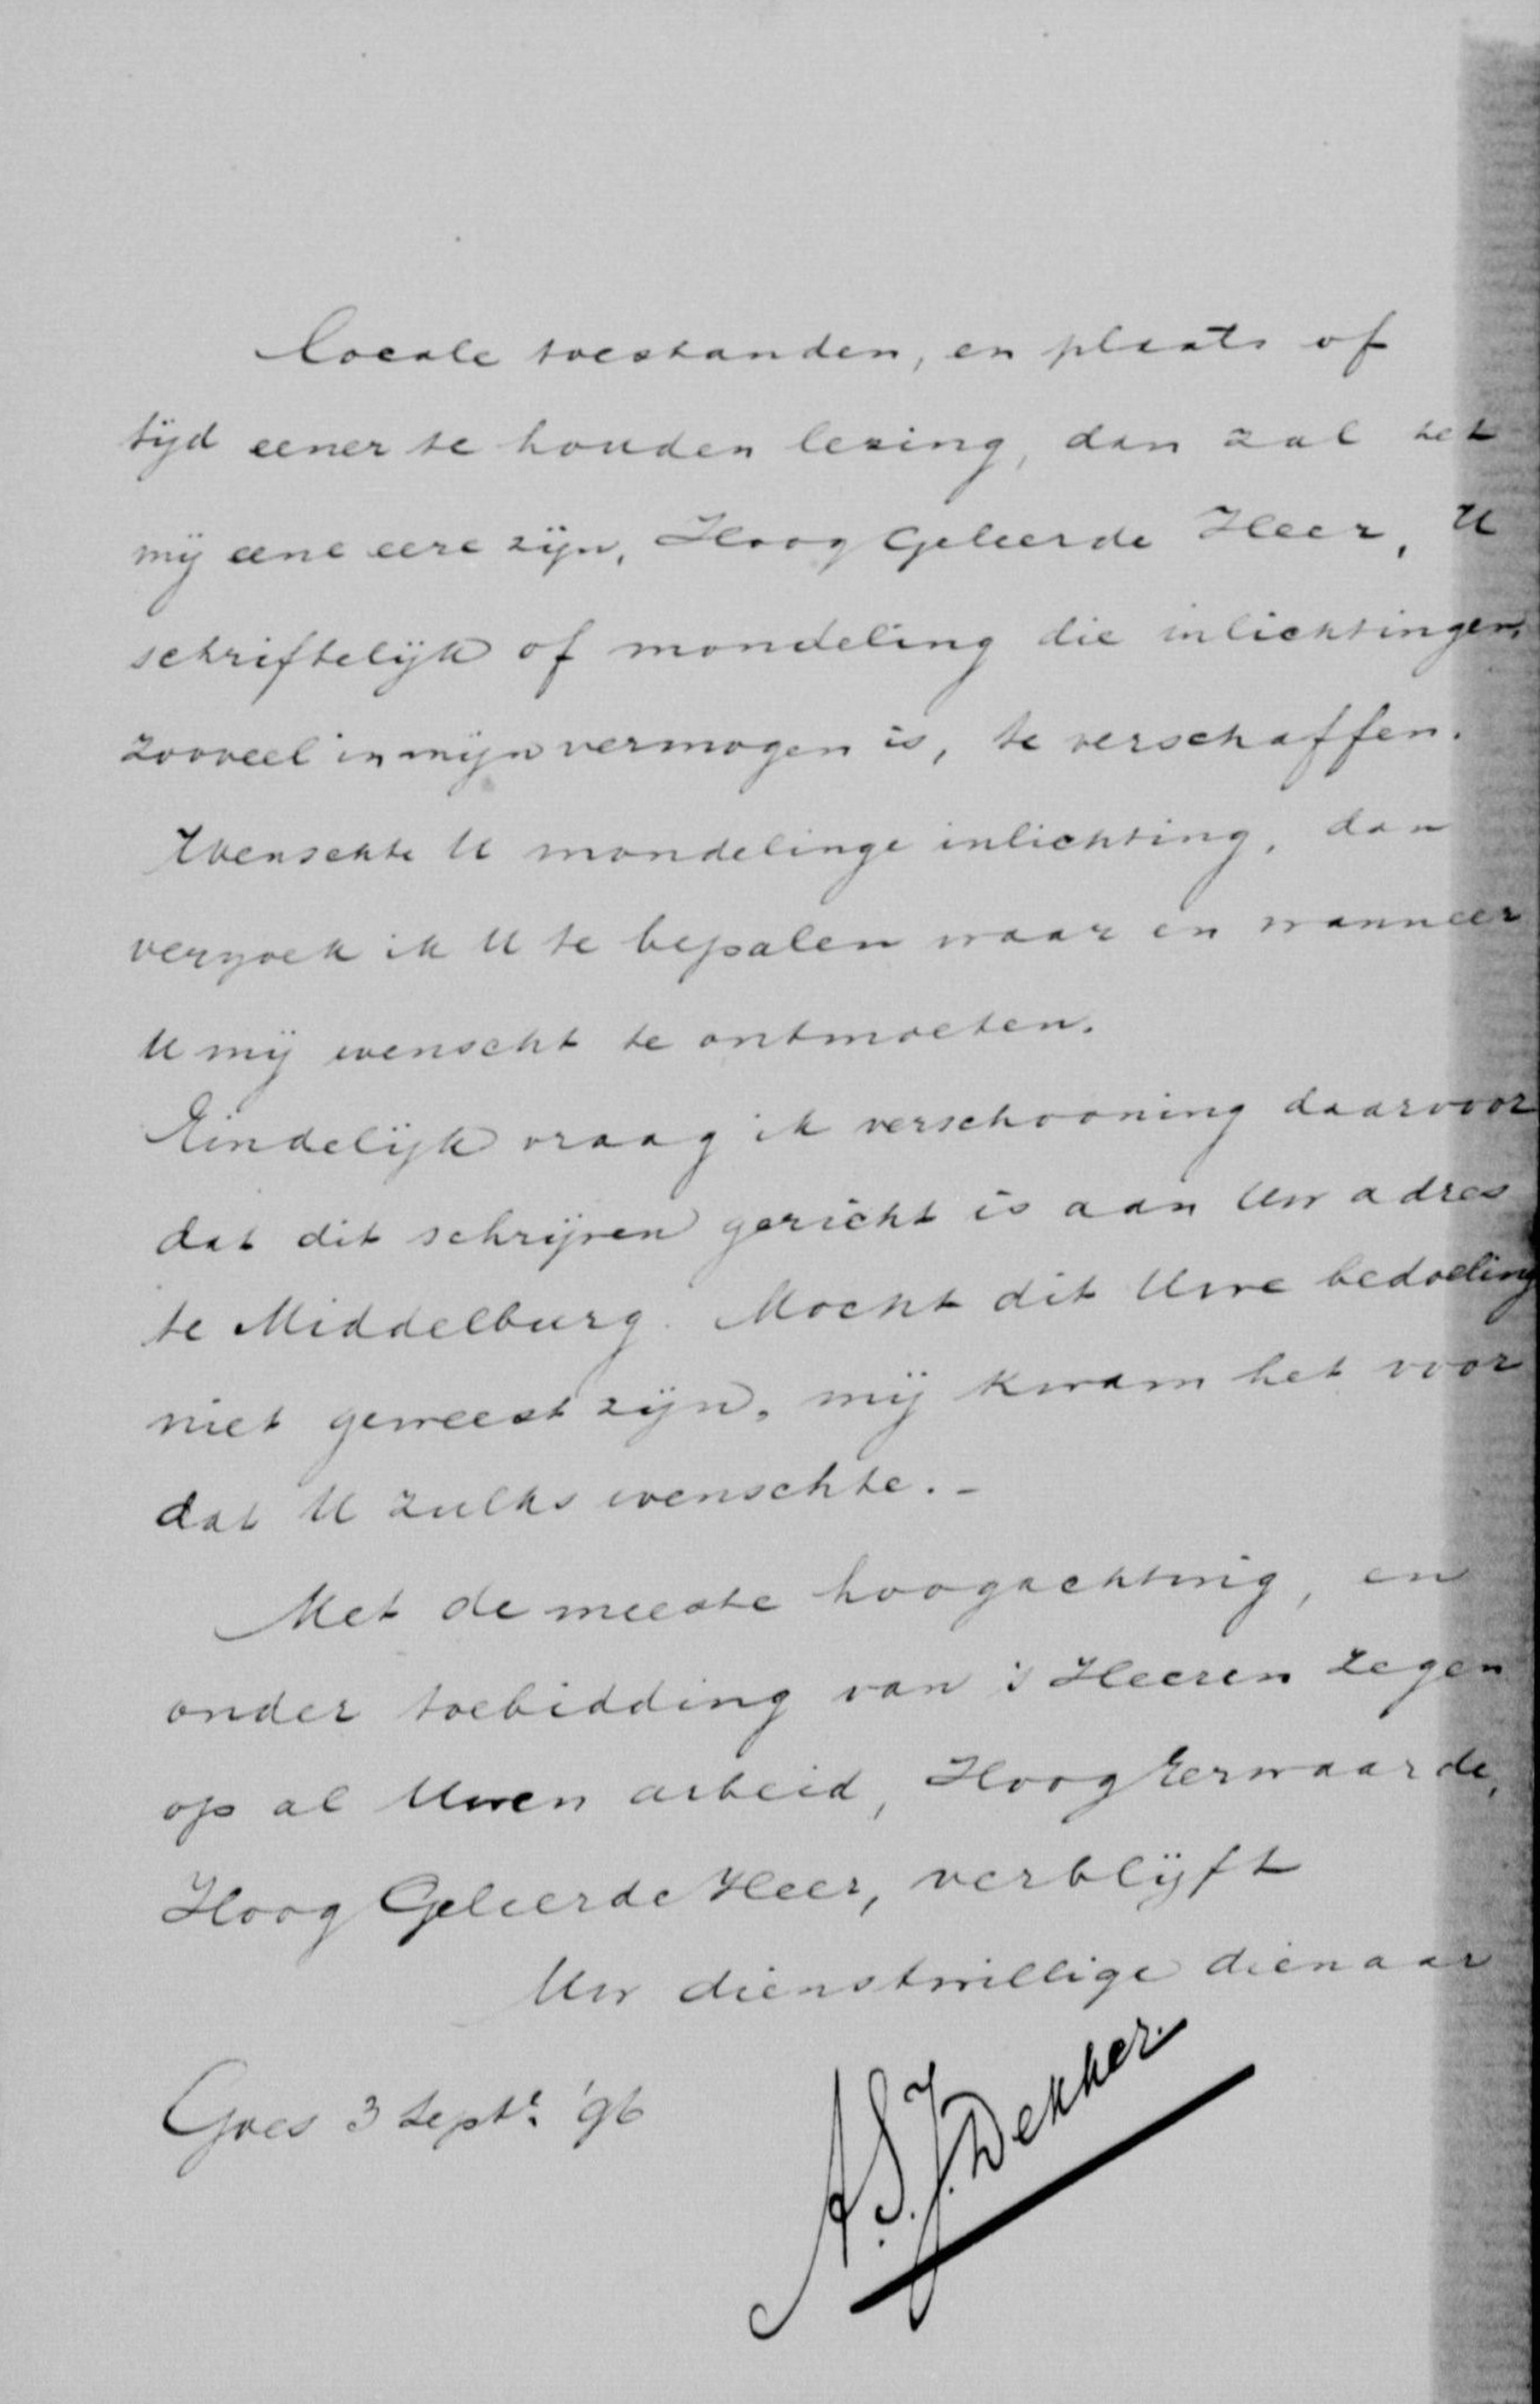 locale toestanden, en plaats of
tijd eener te houden lezing, dan zal het
mij eene eere zijn, Hoog Geleerde Heer, U
schriftelijk of mondeling die inlichtingen,
zooveel in mijn vermogen is, te verschaffen.
Wenschte U mondelinge inlichting, dan
verzoek ik U te bepalen waar en wanneer
U mij wenscht te ontmoeten.
Eindelijk vraag ik verschooning daarvoor
dat dit schrijven gericht is aan Uw adres
te Middelburg. Mocht dit Uwe bedoeling
niet geweest zijn, mij kwam het voor
dat U zulks wenschte. -
Met de meeste hoogachting, en
onder toebidding van 's Heeren zegen
op al Uwen arbeid, Hoog Eerwaarde,
Hoog Geleerde Heer, verblijft
Uw dienstwillige dienaar
A.S.J. Dekker.
Goes 3 Septr. '96